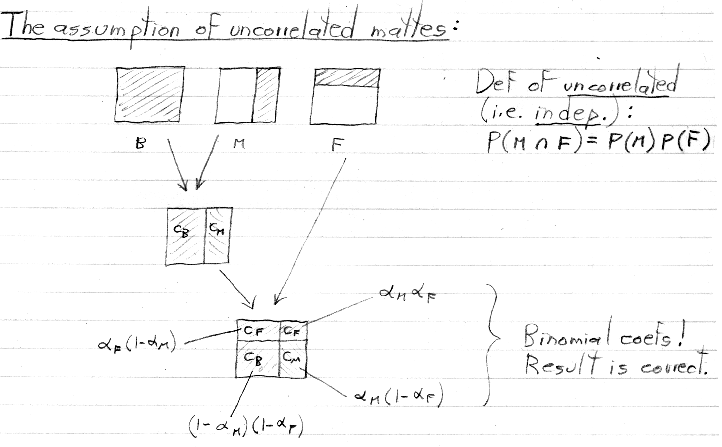 The assumption of uncorrelated mattes:
Def of uncorrelated
(i.e. indep.):
P(M ∩ F) = P(M) P(F)
B
M
F
C_B
C_M
α_M α_F
C_F
C_F
α_F (1-α_M)
C_B
C_M
Binomial coefs!
Result is correct.
α_M (1-α_F)
(1-α_M)(1-α_F)